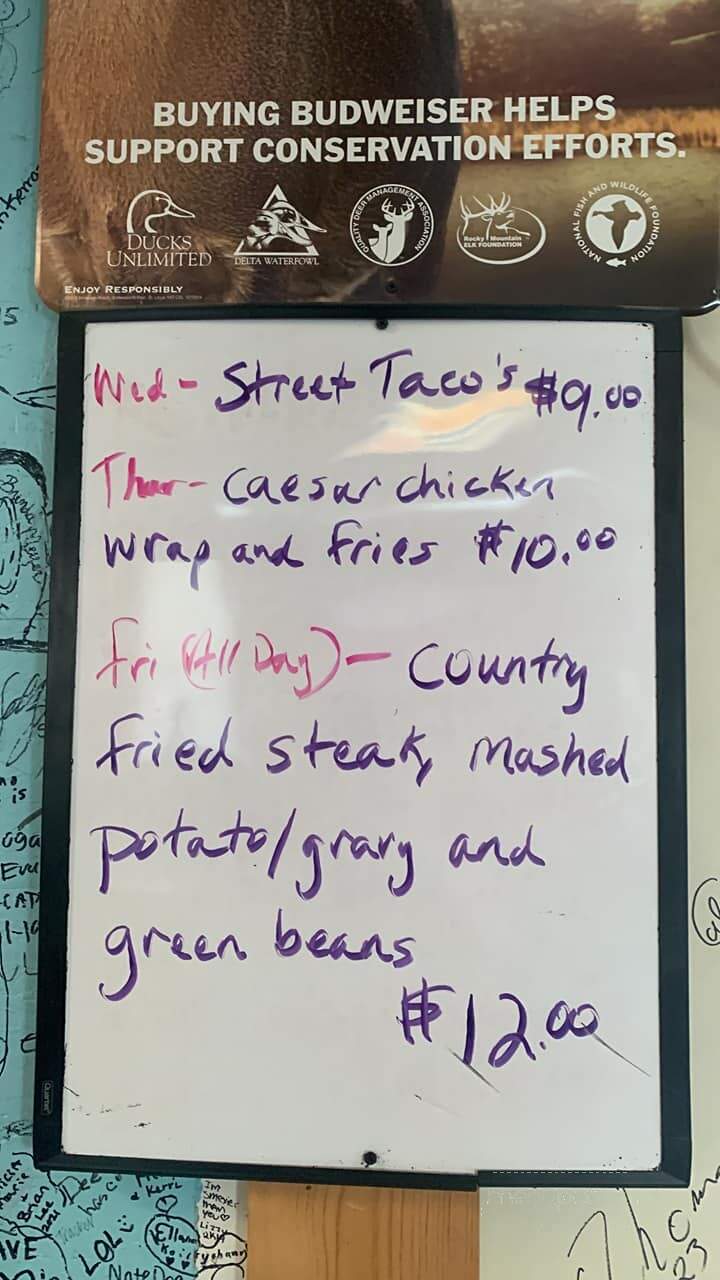 BUYING BUDWEISER HELPS
SUPPORT CONSERVATION EFFORTS.
DUCKS
UNLIMITED
DELTA WATERFOWL
QUALITY DEER MANAGEMENT ASSOCIATION
Rocky Mountain
ELK FOUNDATION
NATIONAL FISH AND WILDLIFE FOUNDATION
ENJOY RESPONSIBLY
Wed - Street Taco's $9.00
Thur - Caesar chicken
wrap and fries $10.00
Fri (All Day) - Country
fried steak, mashed
potato/gravy and
green beans
$12.00
Quartet
Brian
Dee
Kerri
LOL
I'm
smarter
than
you
Lizzy
23